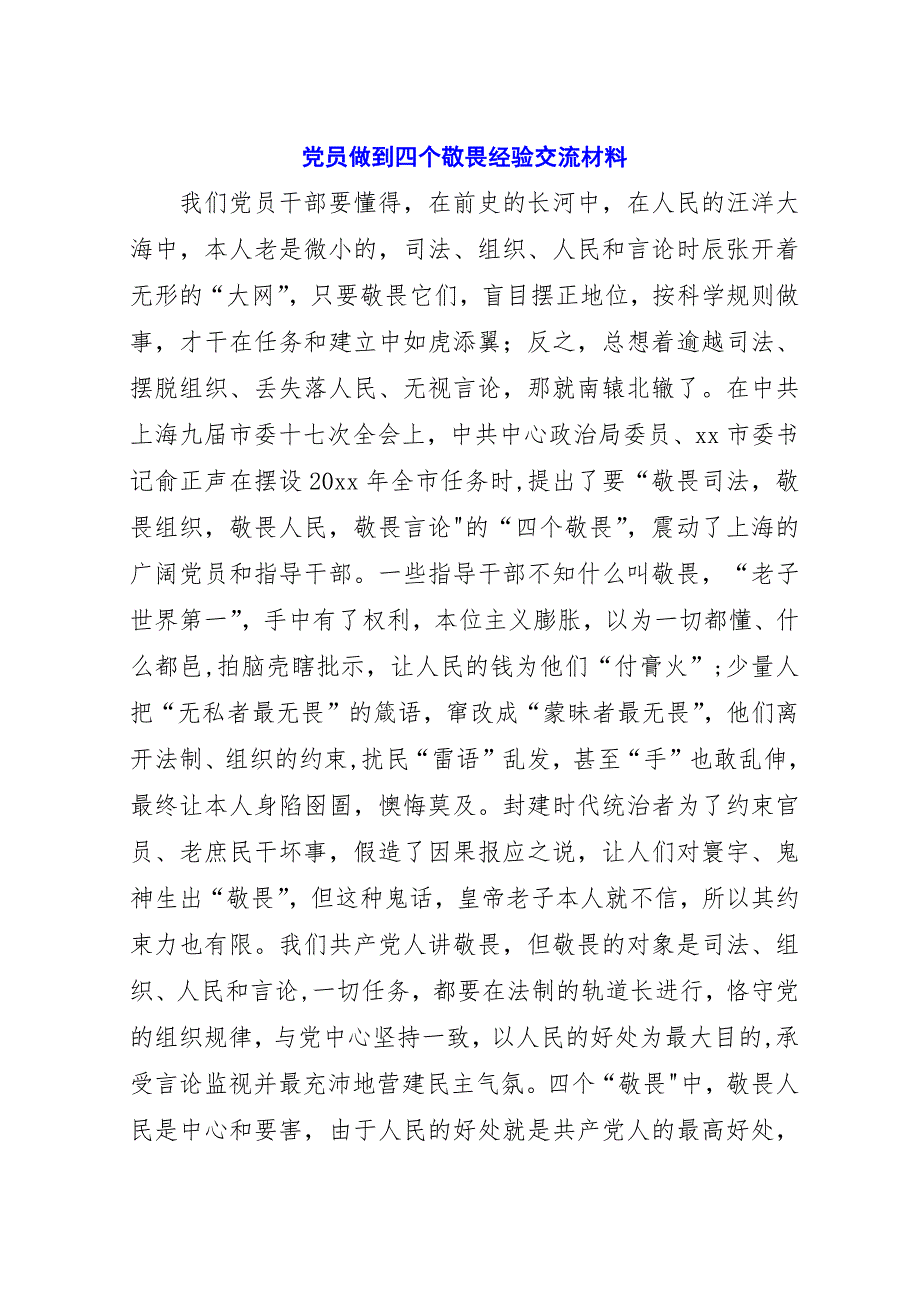 党员做到四个敬畏经验交流材料
我们党员干部要懂得，在前史的长河中，在人民的汪洋大
海中，本人老是微小的，司法、组织、人民和言论时辰张开着
无形的“大网”，只要敬畏它们，盲目摆正地位，按科学规则做
事，才干在任务和建立中如虎添翼；反之，总想着逾越司法、
摆脱组织、丢失落人民、无视言论，那就南辕北辙了。在中共
上海九届市委十七次全会上，中共中心政治局委员、xx 市委书
记俞正声在摆设 20xx 年全市任务时,提出了要“敬畏司法，敬
畏组织，敬畏人民，敬畏言论"的“四个敬畏”，震动了上海的
广阔党员和指导干部。一些指导干部不知什么叫敬畏，“老子
世界第一”，手中有了权利，本位主义膨胀，以为一切都懂、什
么都邑,拍脑壳瞎批示，让人民的钱为他们“付膏火”;少量人
把“无私者最无畏”的箴语，窜改成“蒙昧者最无畏”，他们离
开法制、组织的约束,扰民“雷语”乱发，甚至“手”也敢乱伸，
最终让本人身陷囹圄，懊悔莫及。封建时代统治者为了约束官
员、老庶民干坏事，假造了因果报应之说，让人们对寰宇、鬼
神生出“敬畏”，但这种鬼话，皇帝老子本人就不信，所以其约
束力也有限。我们共产党人讲敬畏，但敬畏的对象是司法、组
织、人民和言论,一切任务，都要在法制的轨道长进行，恪守党
的组织规律，与党中心坚持一致，以人民的好处为最大目的,承
受言论监视并最充沛地营建民主气氛。四个“敬畏"中，敬畏人
民是中心和要害，由于人民的好处就是共产党人的最高好处，